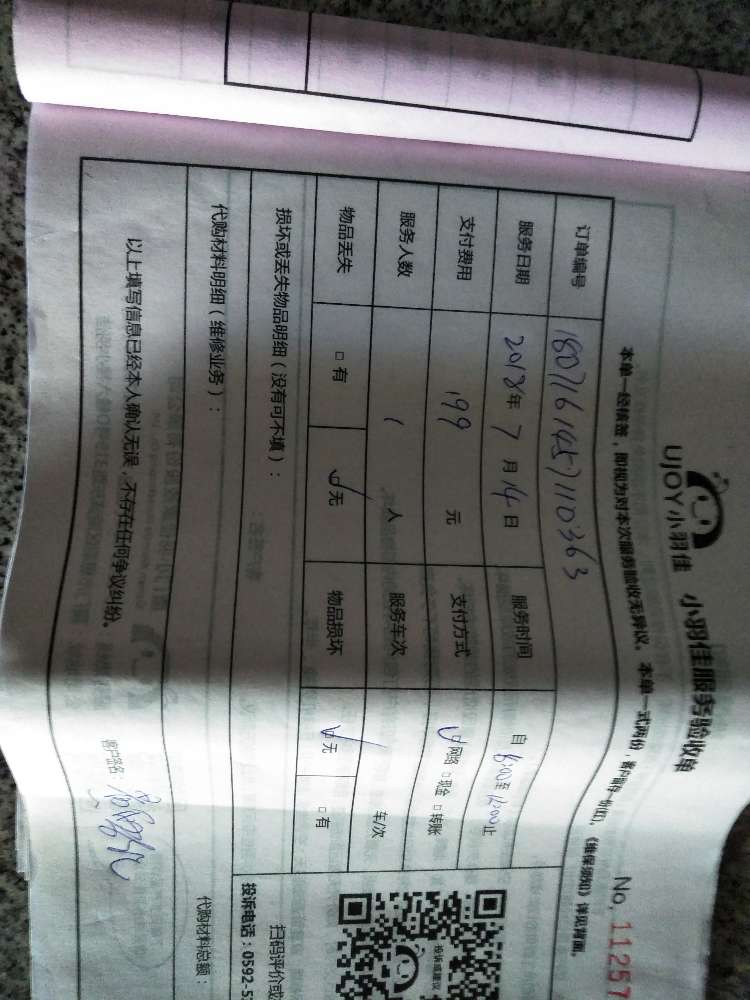 UJOY小羽佳 小羽佳服务验收单
No. 11257
本单一经核签，即视为对本次服务验收无异议。本单一式两份，客户留存一份(红)，《维保须知》详见背面。
订单编号 1807161457110363
服务日期 2018年7月14日 服务时间 自8:00至12:00止
支付费用 199元 支付方式 网络 现金 转账
服务人数 1人 服务车次 车/次
物品丢失 有 无 物品损坏 无 有
损坏或丢失物品明细（没有可不填）：
代购材料明细（维修业务）：
代购材料总额：
以上填写信息已经本人确认无误，不存在任何争议纠纷。
客户签名：
投诉或建议
扫码评价或
投诉电话：0592-5